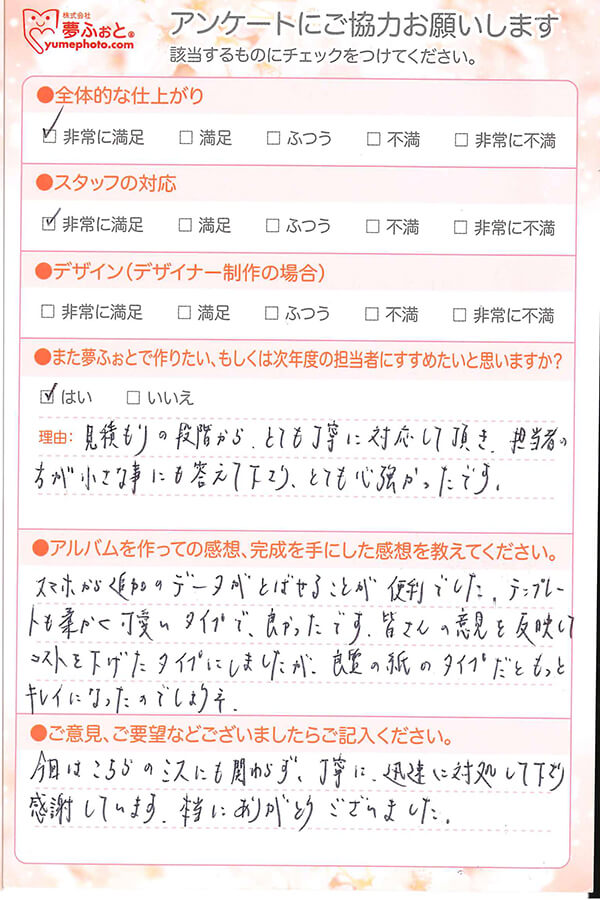 株式会社
夢ふぉと®
yumephoto.com
アンケートにご協力お願いします
該当するものにチェックをつけてください。
●全体的な仕上がり
☑ 非常に満足 □ 満足 □ ふつう □ 不満 □ 非常に不満
●スタッフの対応
☑ 非常に満足 □ 満足 □ ふつう □ 不満 □ 非常に不満
●デザイン(デザイナー制作の場合)
□ 非常に満足 □ 満足 □ ふつう □ 不満 □ 非常に不満
●また夢ふぉとで作りたい、もしくは次年度の担当者にすすめたいと思いますか?
☑ はい □ いいえ
理由: 見積もりの段階から、とても丁寧に対応して頂き、担当者の
方が小さな事にも答えて下さり、とても心強かったです。
●アルバムを作っての感想、完成を手にした感想を教えてください。
スマホから追加のデータがとばせることが便利でした。テンプレー
トも柔かく可愛いタイプで、良かったです。皆さんの意見を反映して
コストを下げたタイプにしましたが、良質の紙のタイプだともっと
キレイになったのでしょうネ。
●ご意見、ご要望などございましたらご記入ください。
今回はこちらのミスにも関わらず、丁寧に、迅速に対処して下さり
感謝しています。本当にありがとうございました。